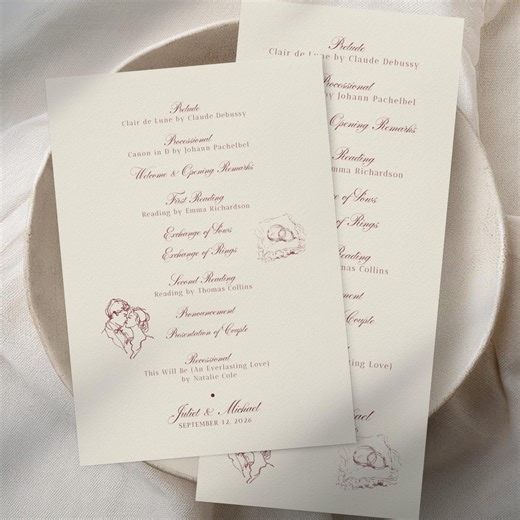 Prelude
Clair de Lune by Claude Debussy
Processional
Canon in D by Johann Pachelbel
Welcome & Opening Remarks
First Reading
Reading by Emma Richardson
Exchange of Vows
Exchange of Rings
Second Reading
Reading by Thomas Collins
Pronouncement
Presentation of Couple
Recessional
This Will Be (An Everlasting Love)
by Natalie Cole
Juliet & Michael
SEPTEMBER 12, 2026
Prelude
Clair de Lune by Claude Debussy
Processional
by Johann Pachelbel
Opening Remarks
Reading
Emma Richardson
of Vows
of Rings
Reading
Thomas Collins
of Couple
Everlasting Love)